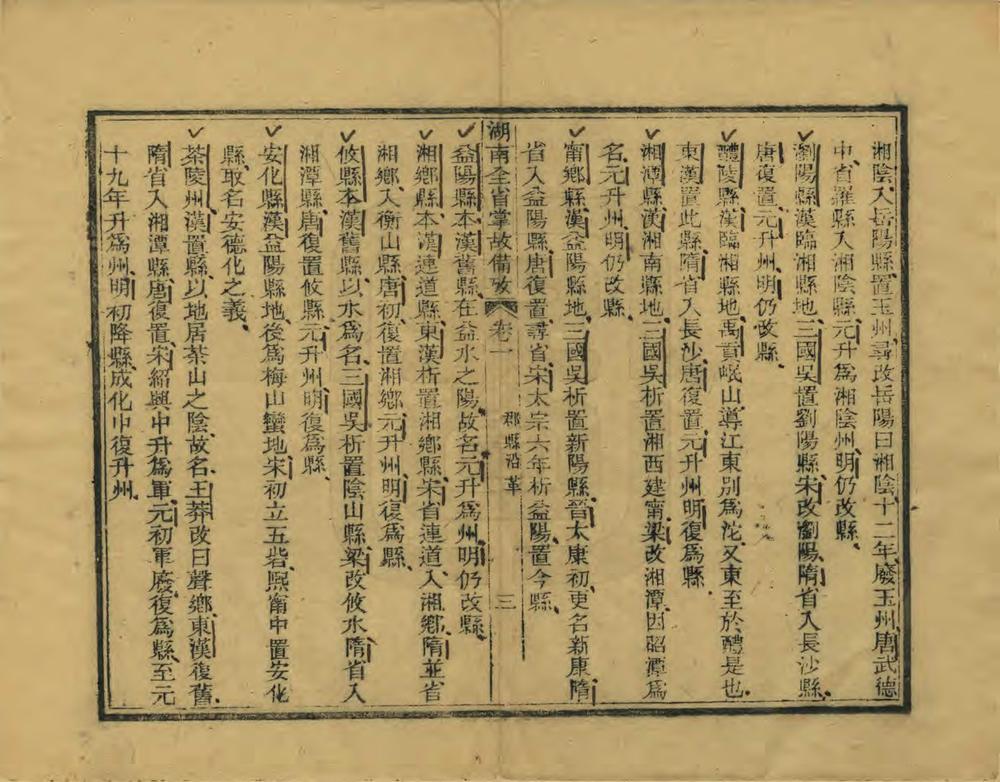 湘陰入岳陽縣置玉州尋改岳陽曰湘陰十二年廢玉州唐武德
中省羅縣入湘陰縣元升爲湘陰州明仍改縣
瀏陽縣漢臨湘縣地三國吳置劉陽縣宋改瀏陽隋省入長沙縣
唐復置元升州明仍改縣
醴陵縣漢臨湘縣地禹貢岷山導江東別爲沱又東至於醴是也
東漢置此縣隋省入長沙唐復置元升州明復爲縣
湘潭縣漢湘南縣地三國吳析置湘西建甯梁改湘潭因昭潭爲
名元升州明仍改縣
甯鄉縣漢益陽縣地三國吳析置新陽縣晉太康初更名新康隋
省入益陽縣唐復置尋省宋太宗六年析益陽置今縣
湖南全省掌故備攷 卷一 郡縣沿革 三
益陽縣本漢舊縣在益水之陽故名元升爲州明仍改縣
湘鄉縣本漢連道縣東漢析置湘鄉縣宋省連道入湘鄉隋並省
湘鄉入衡山縣唐初復置湘鄉元升州明復爲縣
攸縣本漢舊縣以水爲名三國吳析置陰山縣梁改攸水隋省入
湘潭縣唐復置攸縣元升州明復爲縣
安化縣漢益陽縣地後爲梅山蠻地宋初立五砦熙甯中置安化
縣取名安德化之義
茶陵州漢置縣以地居茶山之陰故名王莽改曰聲鄉東漢復舊
隋省入湘潭縣唐復置宋紹興中升爲軍元初軍廢復爲縣至元
十九年升爲州明初降縣成化中復升州